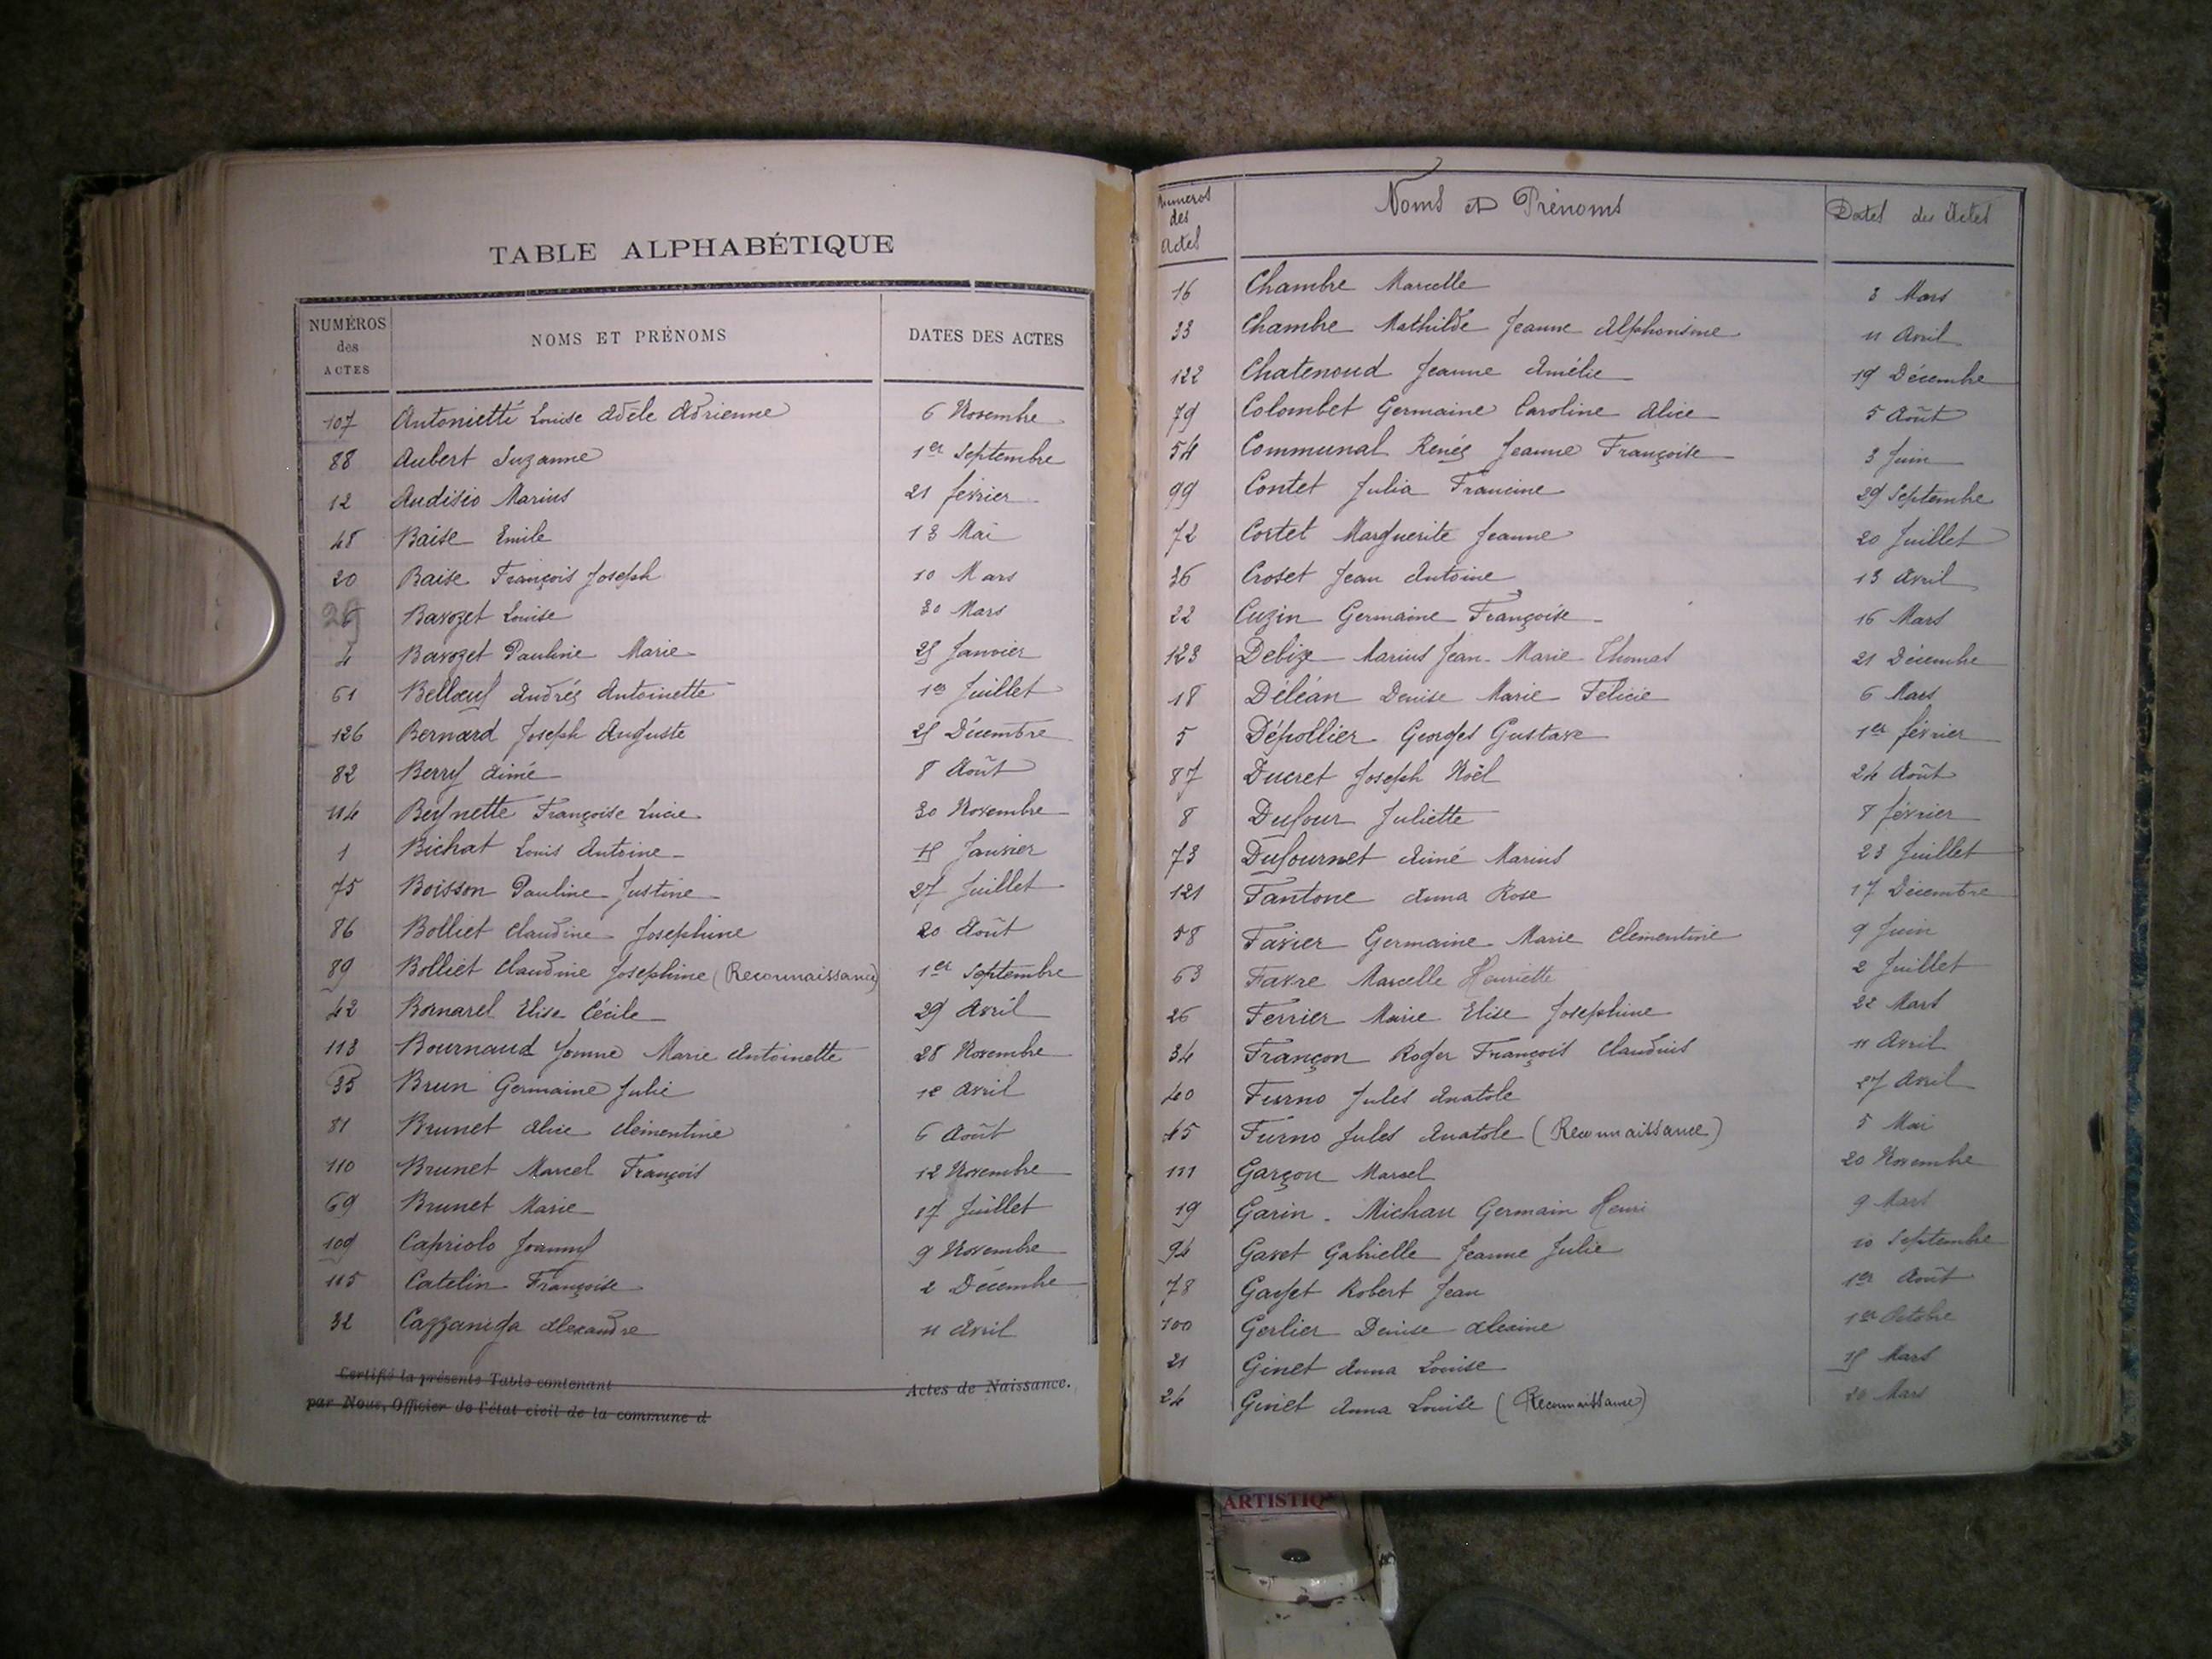 TABLE ALPHABÉTIQUE
NUMÉROS des ACTES NOMS ET PRÉNOMS DATES DES ACTES
107 Antonietti Louise Adèle Adrienne 6 Novembre
88 Aubert Suzanne 1er Septembre
12 Audisio Marius 21 février
48 Baise Emile 13 Mai
20 Baise François Joseph 10 Mars
Bavozet Louise 30 Mars
4 Bavozet Pauline Marie 25 Janvier
61 Bellœuf Andrée Antoinette 1er Juillet
126 Bernard Joseph Auguste 25 Décembre
82 Berry Aimé 8 Août
114 Beynette Françoise Lucie 30 Novembre
1 Bichat Louis Antoine 15 Janvier
75 Boisson Pauline Justine 27 Juillet
86 Bolliet Claudine Josephine 20 Août
89 Bolliet Claudine Josephine (Reconnaissance) 1er Septembre
42 Bornarel Elise Cécile 29 Avril
113 Bournaud Yonne Marie Antoinette 28 Novembre
35 Brun Germaine Julie 12 Avril
81 Brunet Alice Clementine 6 Août
110 Brunet Marcel François 12 Novembre
69 Brunet Marie 17 Juillet
109 Capriolo Joanny 9 Novembre
115 Catelin Françoise 2 Décembre
32 Cazzaniga Alexandre 11 Avril
Certifié la présente Table contenant Actes de Naissance.
par Nous, Officier de l'état civil de la commune d
Numéros des Actes Noms et Prénoms Dates des Actes
16 Chambre Marcelle 3 Mars
33 Chambre Mathilde Jeanne Alphonsine 11 Avril
122 Chatenoud Jeanne Amélie 19 Décembre
79 Colombet Germaine Caroline Alice 5 Août
54 Communal Renée Jeanne Françoise 3 Juin
99 Contet Julia Francine 29 Septembre
72 Cortet Marguerite Jeanne 20 Juillet
36 Croset Jean Antoine 13 Avril
22 Cuzin Germaine Françoise 16 Mars
123 Debize Marius Jean-Marie Thomas 21 Décembre
18 Déléan Denise Marie Felicie 6 Mars
5 Dépollier Georges Gustave 1er février
87 Ducret Joseph Noël 24 Août
8 Dufour Juliette 8 février
73 Dufournet Aimé Marius 23 Juillet
121 Fantone Anna Rose 17 Décembre
58 Favier Germaine Marie Clementine 9 Juin
63 Favre Marcelle Henriette 2 Juillet
26 Ferrier Marie Elise Josephine 22 Mars
34 Françon Roger François Claudius 11 Avril
40 Furno Jules Anatole 27 Avril
45 Furno Jules Anatole (Reconnaissance) 5 Mai
111 Garçon Marcel 20 Novembre
19 Garin-Michau Germain Henri 9 Mars
94 Gavet Gabrielle Jeanne Julie 10 Septembre
78 Gayet Robert Jean 1er Août
100 Gerlier Denise Alexine 1er Octobre
21 Ginet Anna Louise 15 Mars
24 Ginet Anna Louise (Reconnaissance) 20 Mars
ARTISTIQ